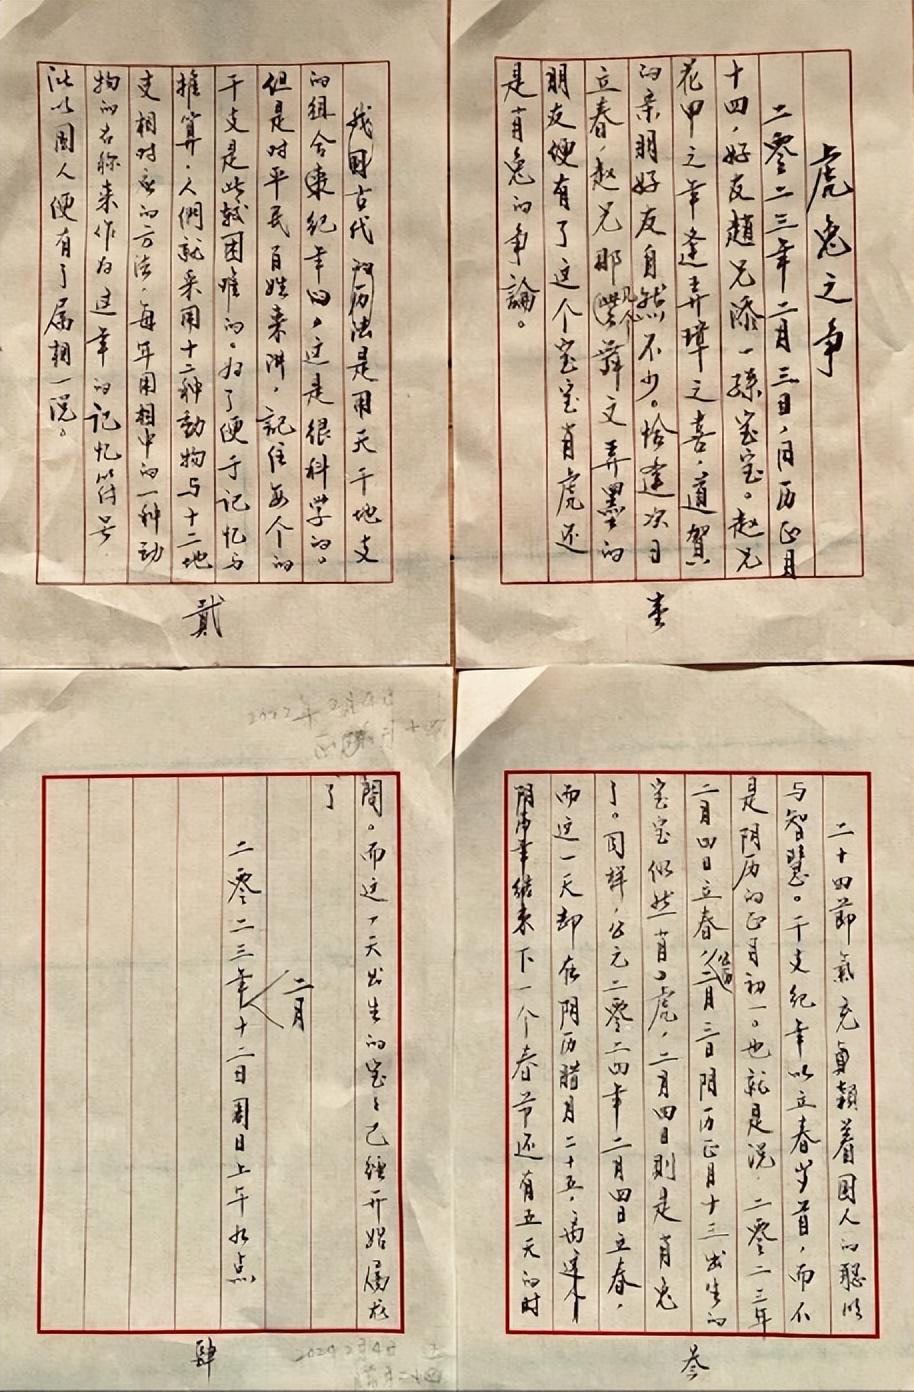 虎兔之争
二零二三年二月三日，月历正月
十四，好友趙兄添一孫宝宝。赵兄
花甲之年逢弄璋之喜，道贺
的亲朋好友自然不少。恰逢次日
立春，赵兄那几个舞文弄墨的
朋友便有了这个宝宝肖虎还
是肖兔的争論。
壹
我国古代的历法是用天干地支
的组合来纪年的，这是很科学的。
但是对平民百姓来讲，記住每个的
干支是比较困难的。为了便于记忆与
推算，人們就采用十二种動物与十二地
支相对应的方法，每年用相中的一种动
物的名称来作为这年的记忆符号，
所以国人便有了属相一说。
贰
二十四節氣充
着国人的聪明
与智慧。干支纪年以立春岁首，而不
是阴历的正月初一。也就是说，二零二三年
二月四日立春，二月三日阴历正月十三出生的
宝宝仍然肖虎，二月四日则是肖兔
了。同样，公元二零二四年二月四日立春，
而这一天却在阴历腊月二十五，离这个
阴历年结束下一个春节还有五天的时
叁
間。而这一天出生的宝宝已经开始属龙
了
二月
二零二三年十二日周日上午九点
肆